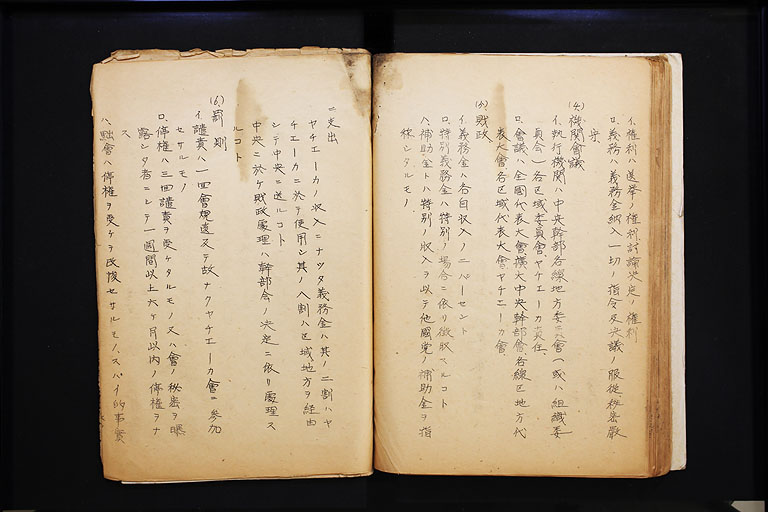 イ、権利ハ選挙ノ権利討論決定ノ権利
ロ、義務ハ義務金納入一切ノ指令及決議ノ服従秘密厳
守
(4) 機関會議
イ、執行機関ハ中央幹部各線地方委員會(或ハ組織委
員会)各区域委員會ヤチエーカ責任
ロ、會議ハ全國代表大會擴大中央幹部會各線区地方代
表大會各区域代表大會ヤチエーカ會
(5) 財政
イ、義務金ハ各自収入ノ二パーセント
ロ、特別義務金ハ特別ノ場合ニ依リ徴収スルコト
ハ、補助金トハ特別ノ収入ヲ以テ他國党ノ補助金ヲ指
称シタルモノ
ニ、支出
ヤチエーカノ収入ニナツタ義務金ハ其ノ二割ハヤ
チエーカニ於テ使用シ其ノ八割ハ区域地方ヲ経由
シテ中央ニ送ルコト
中央ニ於ケ財政處理ハ幹部会ノ決定ニ依リ處理ス
ルコト
(6) 罰則
イ、譴責ハ一四會規違反テ故ナクヤチエーカ會ニ参加
セサルモノ
ロ、停権ハ三回譴責ヲ受ケタルモノ又ハ會ノ秘密ヲ曝
露シタ者ニシテ一週間以上六ケ月以内ノ停権ヲナ
ス
ハ、黜會ハ停権ヲ受ケテ改悛セサルモノ、スパイ的事實